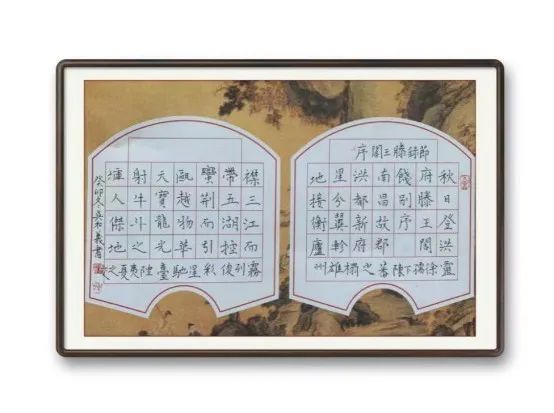 節録滕王閣序
秋日登洪
府滕王閣
餞別序
南昌故郡
洪都新府
星分翼軫
地接衡廬
靈徐孺下陳蕃之榻雄州
襟三江而
帶五湖控
蠻荊而引
甌越物華
天寶龍光
射牛斗之
墟人傑地
霧列俊彩星馳臺隍夷夏之交
癸卯冬吳和義書